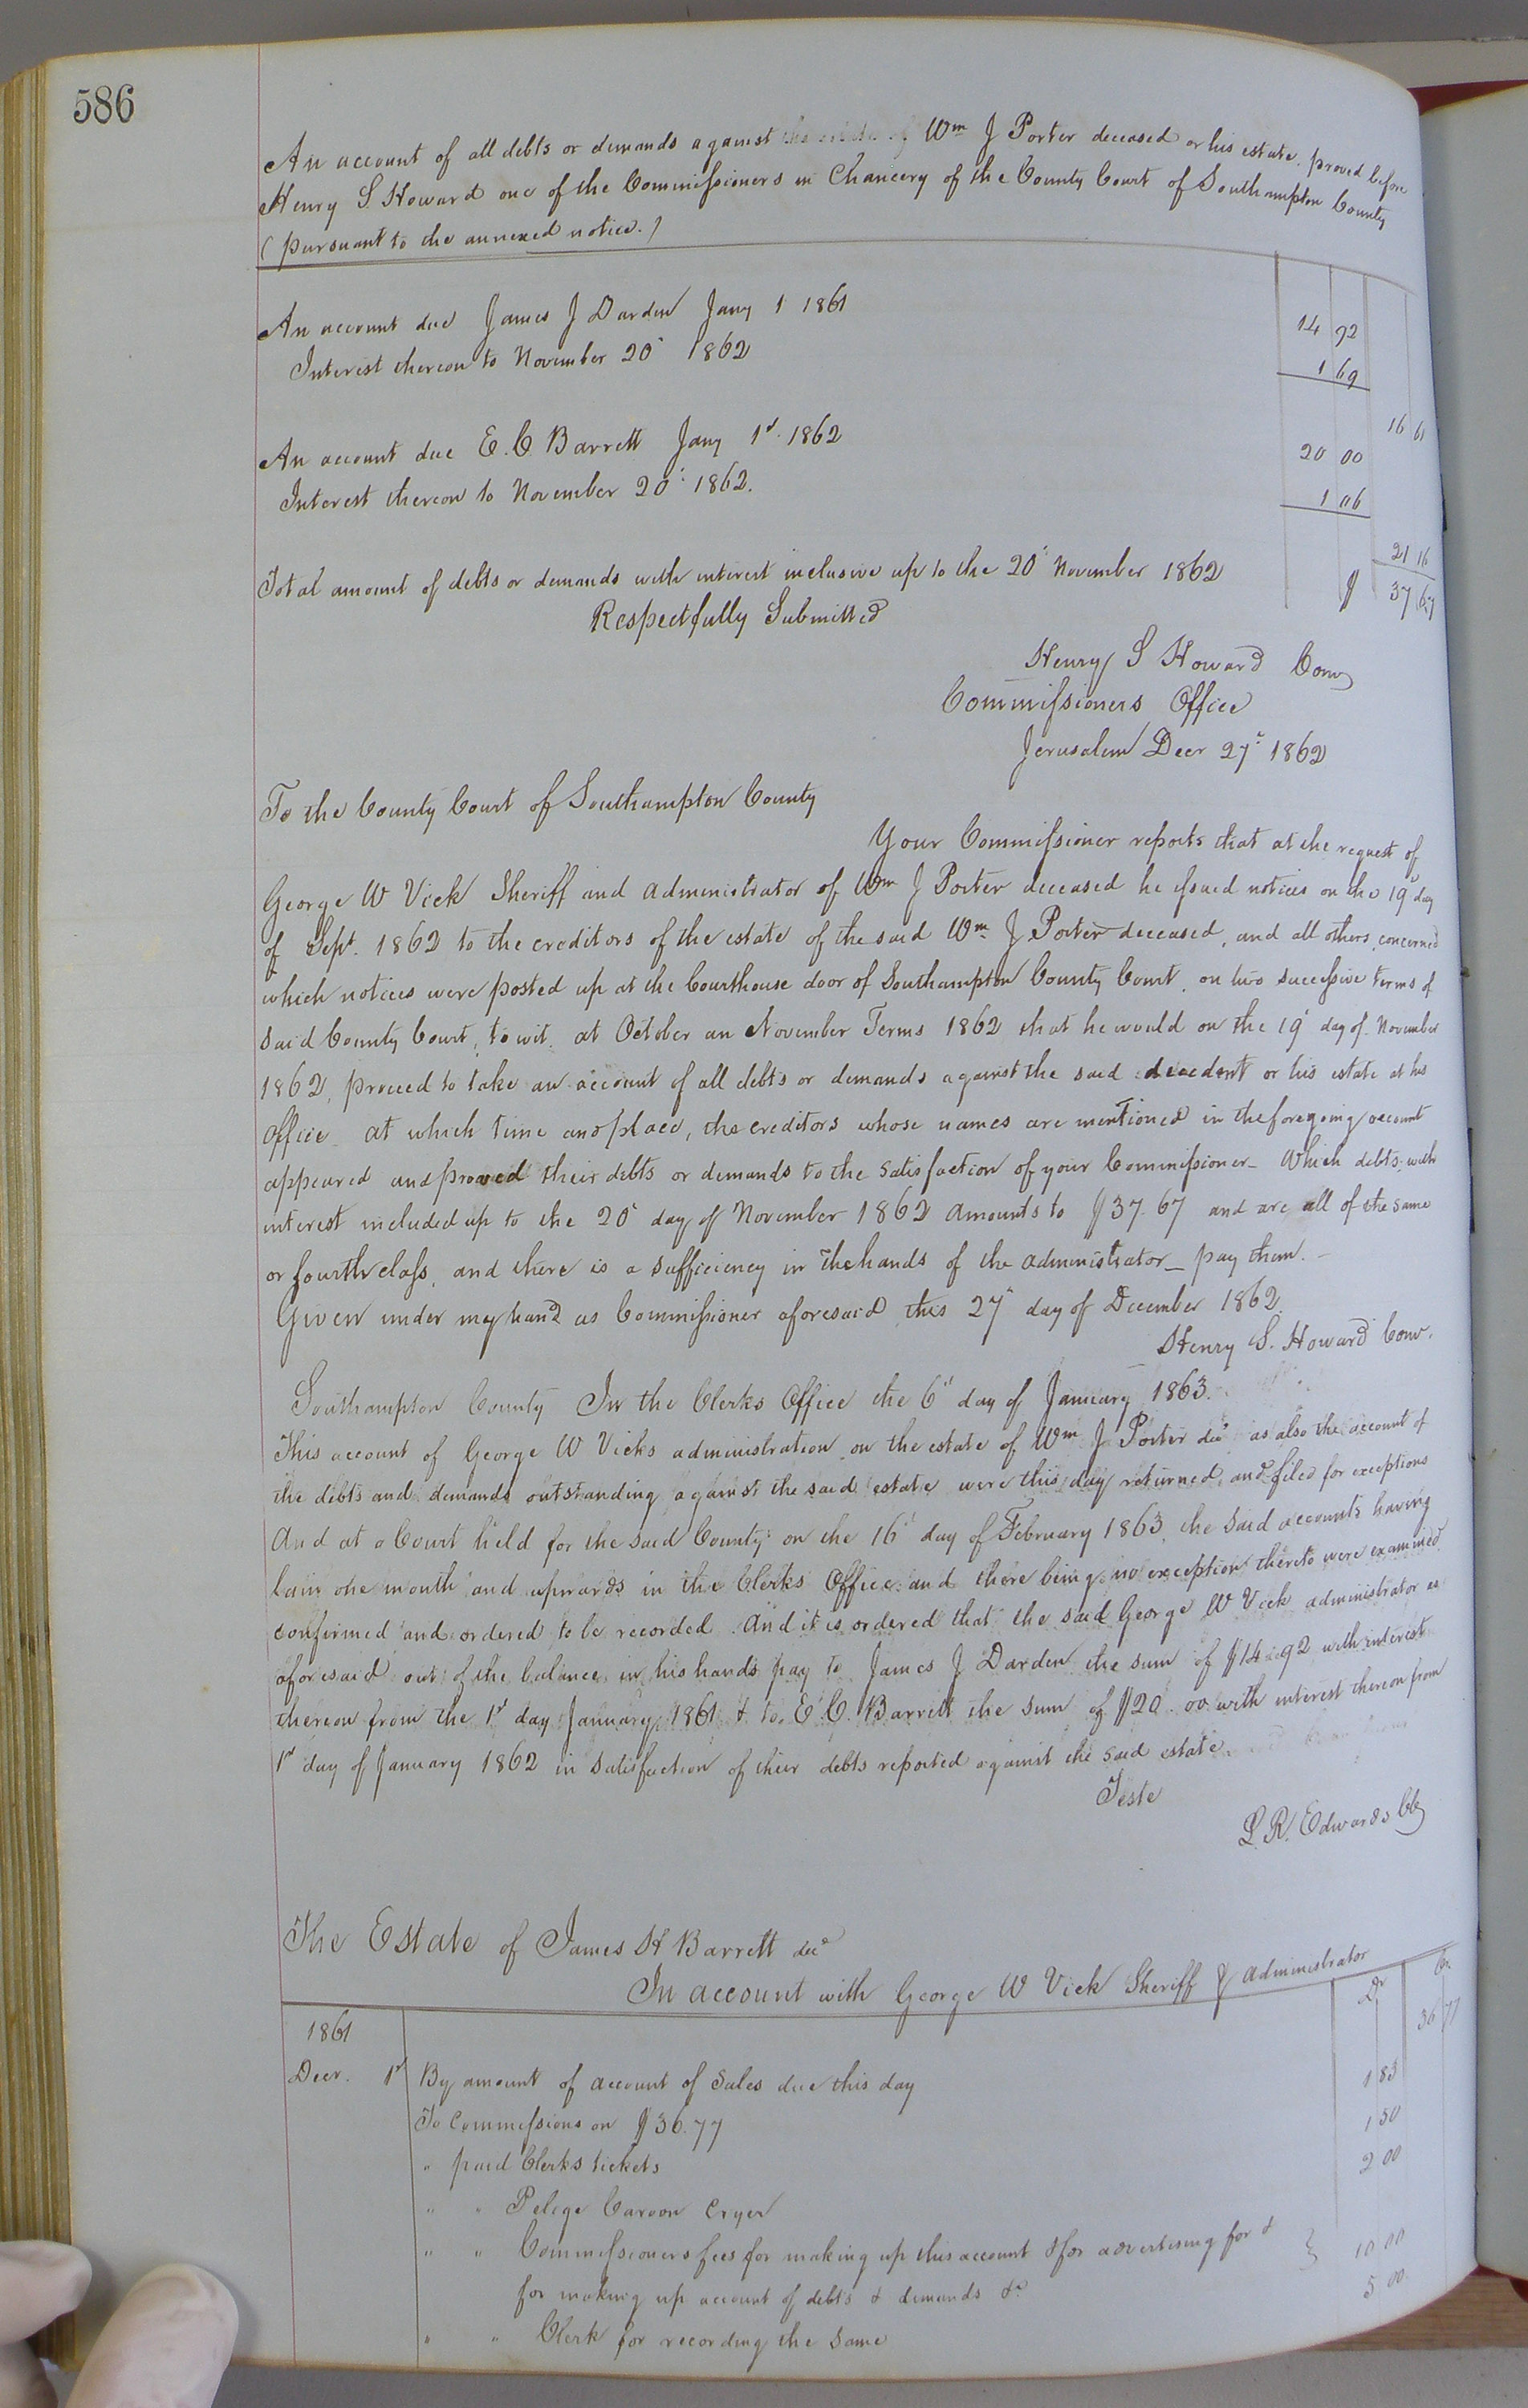 586
An account of all debts or demands against the estate of Wm J Porter deceased or his estate, proved before
Henry S. Howard one of the Commissioners in Chancery of the County Court of Southampton County
(pursuant to the annexed notice.)
An account due James J Darden Jany 1 1861 14 92
Interest thereon to November 20" 1862 1 69
16 61
An account due E. C. Barrett Jany 1st 1862 20 00
Interest thereon to November 20" 1862. 1 06
21 16
Total amount of debts or demands with interest inclusive up to the 20" November 1862 $ 37 67
Respectfully Submitted
Henry S Howard Comr
Commissioners Office
Jerusalem Decr 27" 1862
To the County Court of Southampton County
Your Commissioner reports that at the request of
George W Vick Sheriff and administrator of Wm J Porter deceased he issued notices on the 19" day
of Sept. 1862 to the creditors of the estate of the said Wm J. Porter deceased, and all others concerned
which notices were posted up at the Courthouse door of Southampton County Court, on two successive terms of
said County Court, to wit. at October an November Terms 1862 that he would on the 19" day of November
1862, proceed to take an account of all debts or demands against the said decedent or his estate at his
office at which time and place, the creditors whose names are mentioned in the foregoing account
appeared and proved their debts or demands to the satisfaction of your Commissioner_ Which debts with
interest included up to the 20" day of November 1862 amounts to $37.67 and are all of the same
or fourth class, and there is a sufficiency in the hands of the administrator_ pay them._
Given under my hand as Commissioner aforesaid this 27" day of December 1862.
Henry S. Howard Comr.
Southampton County In the Clerks Office the 6" day of January 1863.
This account of George W Vicks administration on the estate of Wm J Porter decd as also the account of
the debts and demands outstanding against the said estate were this day returned and filed for exceptions
And at a Court held for the said County on the 16" day of February 1863, the said accounts having
lain one month and upwards in the Clerks Office and there being no exception thereto were examined
confirmed and ordered to be recorded. And it is ordered that the said George W Vick administrator as
aforesaid out of the balance in his hands pay to James J Darden the sum of $14.92 with interest
thereon from the 1st day January 1861 & to E C. Barrett the sum of $20.00 with interest thereon from
1st day of January 1862 in satisfaction of their debts reported against the said estate
Teste
L. R. Edwards Clk
The Estate of James H Barrett decd
In account with George W Vick Sheriff & administrator
Dr Cr
1861 36 77
Decr. 1st By amount of account of Sales due this day
To Commissions on $36.77 1 83
" paid Clerks tickets 1 50
" " Pelige Carson Cryer 2 00
" " Commissioners fees for making up this account & for advertising for &
for making up account of debts & demands &c 10 00
" " Clerk for recording the same 5 00.